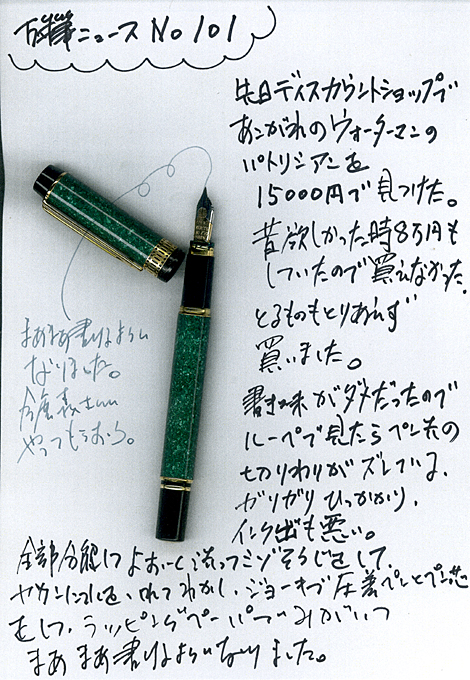 万年筆ニュース No 101
先日ディスカウントショップで
あこがれのウォーターマンの
パトリシアンを
15000円で見つけた。
昔欲しかった時8万円も
していたので買えなかった。
とるものもとりあえず
買いました。
書き味がダメだったので
ルーペで見たらペン先の
切りわりがズレている、
ガリガリひっかかり、
インク出も悪い。
全部分解してよおーく洗ってミゾそうじをして、
ヤカンに れてわかし、 圧着 ペンとペン芯
をして、ラッピングペーパーでみがいて
まあまあ書けるようになりました。
まあまあ書けるように
なりました。
さんに
やってもらおう。